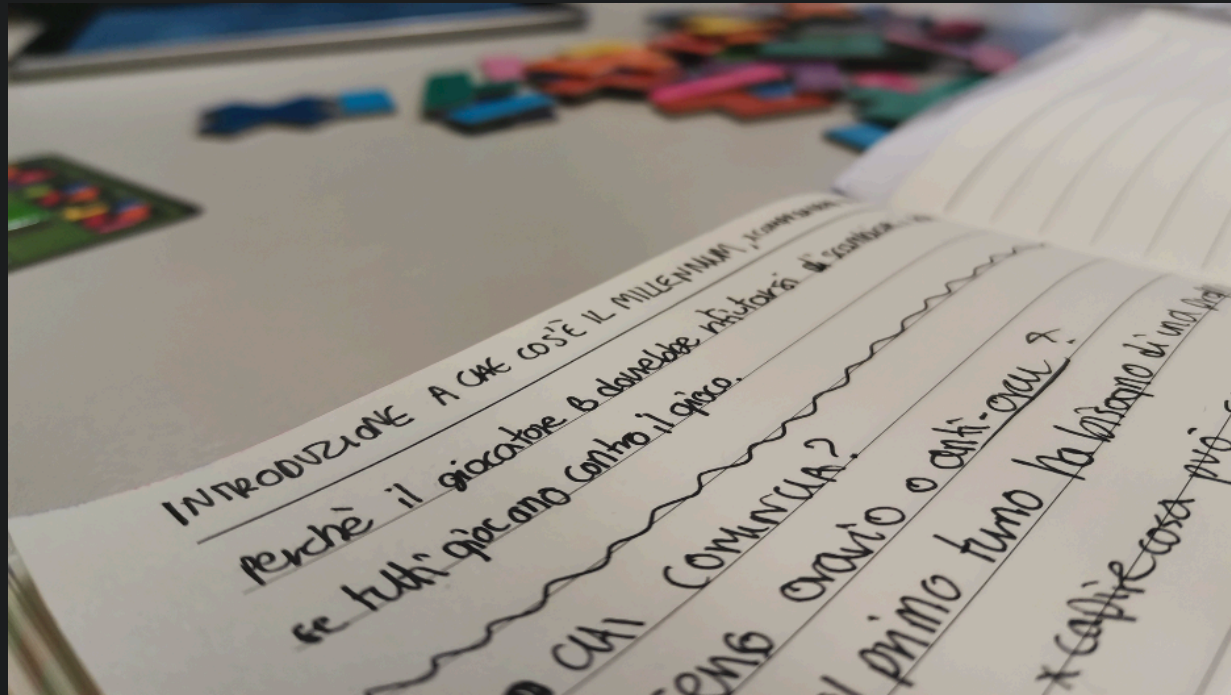 INTRODUZIONE A CHE COS'È IL MILLENNIUM,
perchè il giocatore B dovrebbe rifiutarsi di scambiare
se tutti giocano contro il gioco.
CHI COMINCIA?
orario o anti-orau?
primo turno ha bisogno di una
x capire cosa può